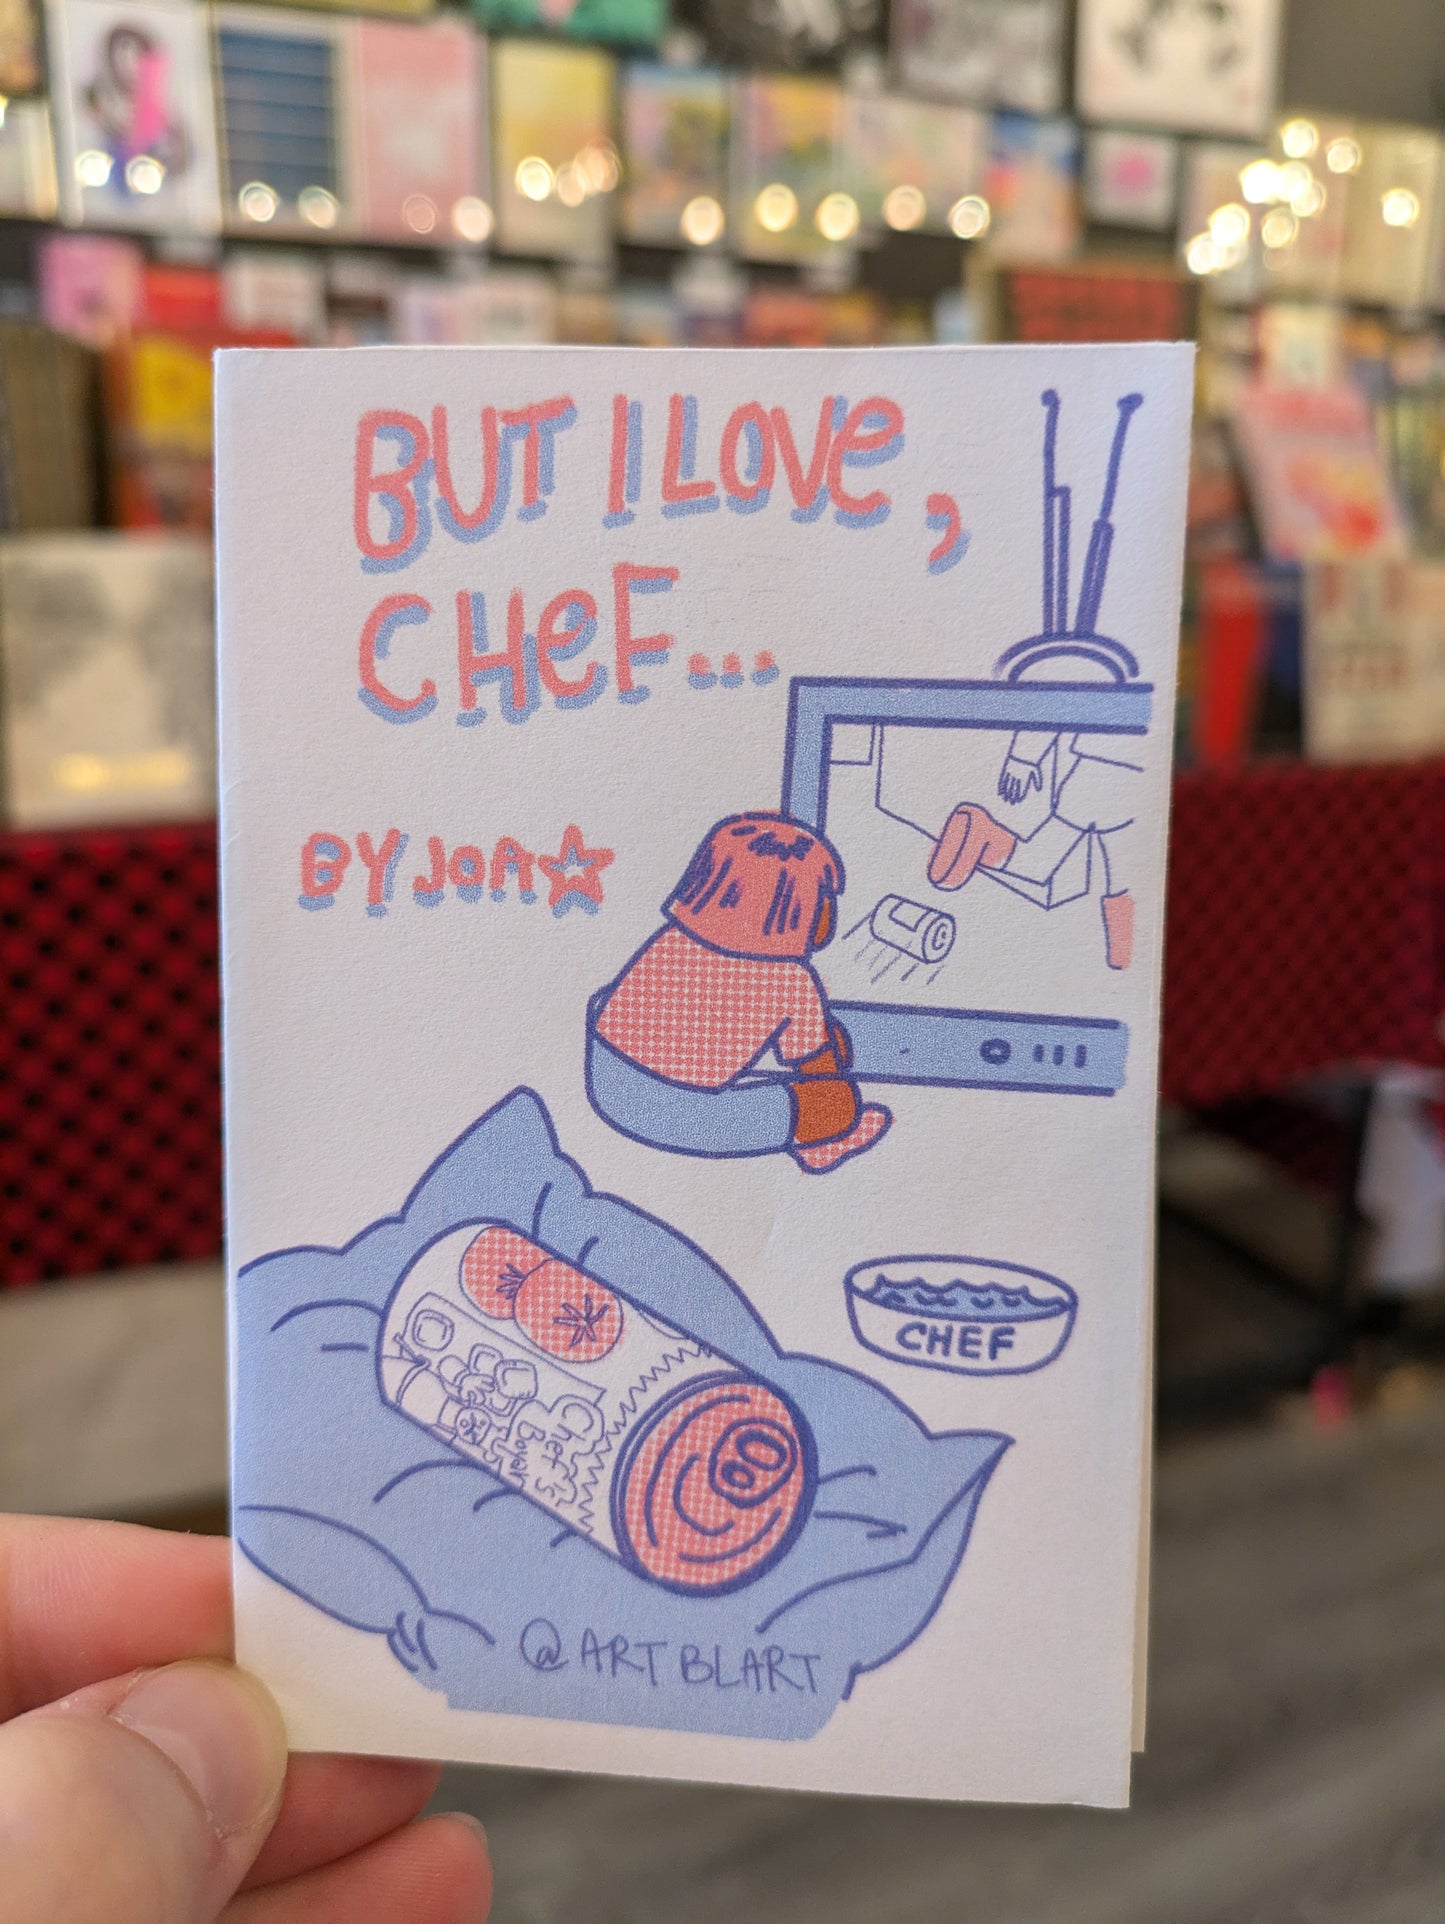 BUT I LOVE,
CHEF...
BY JOA
CHEF
Chef's
Boyar
@ARTBLART